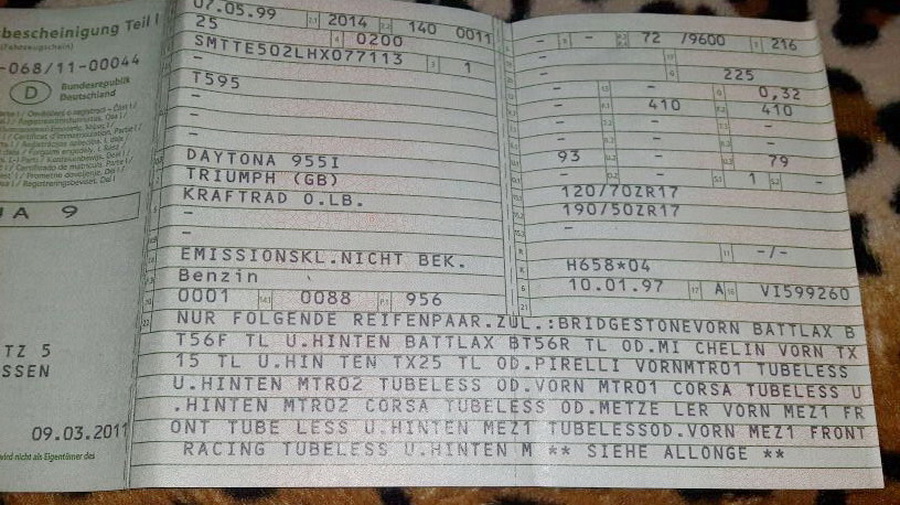 bescheinigung Teil I
(Fahrzeugschein)
-068/11-00044
D Bundesrepublik
Deutschland
A 9
TZ 5
SSEN
09.03.2011
wird nicht als Eigentümer des
07.05.99 2.1 2014 2.2 140 0011
25 4 0200
SMTTE502LHX077113 3 1
T595
-
-
-
DAYTONA 955I
TRIUMPH (GB)
KRAFTRAD O.LB.
-
-
EMISSIONSKL.NICHT BEK.
Benzin
0001 14.1 0088 P.1 956
- 9 - 72 /9600 T 216
-
- 225
- - 0,32
- 410 410
- - -
- - -
93 - 79
- 1 -
120/70ZR17
190/50ZR17
-
-/-
H658*04
10.01.97 17 A 16 VI599260
NUR FOLGENDE REIFENPAAR.ZUL.:BRIDGESTONEVORN BATTLAX B
T56F TL U.HINTEN BATTLAX BT56R TL OD.MI CHELIN VORN TX
15 TL U.HIN TEN TX25 TL OD.PIRELLI VORNMTR01 TUBELESS
U.HINTEN MTR02 TUBELESS OD.VORN MTR01 CORSA TUBELESS U
.HINTEN MTR02 CORSA TUBELESS OD.METZE LER VORN MEZ1 FR
ONT TUBE LESS U.HINTEN MEZ1 TUBELESSOD.VORN MEZ1 FRONT
RACING TUBELESS U.HINTEN M ** SIEHE ALLONGE **